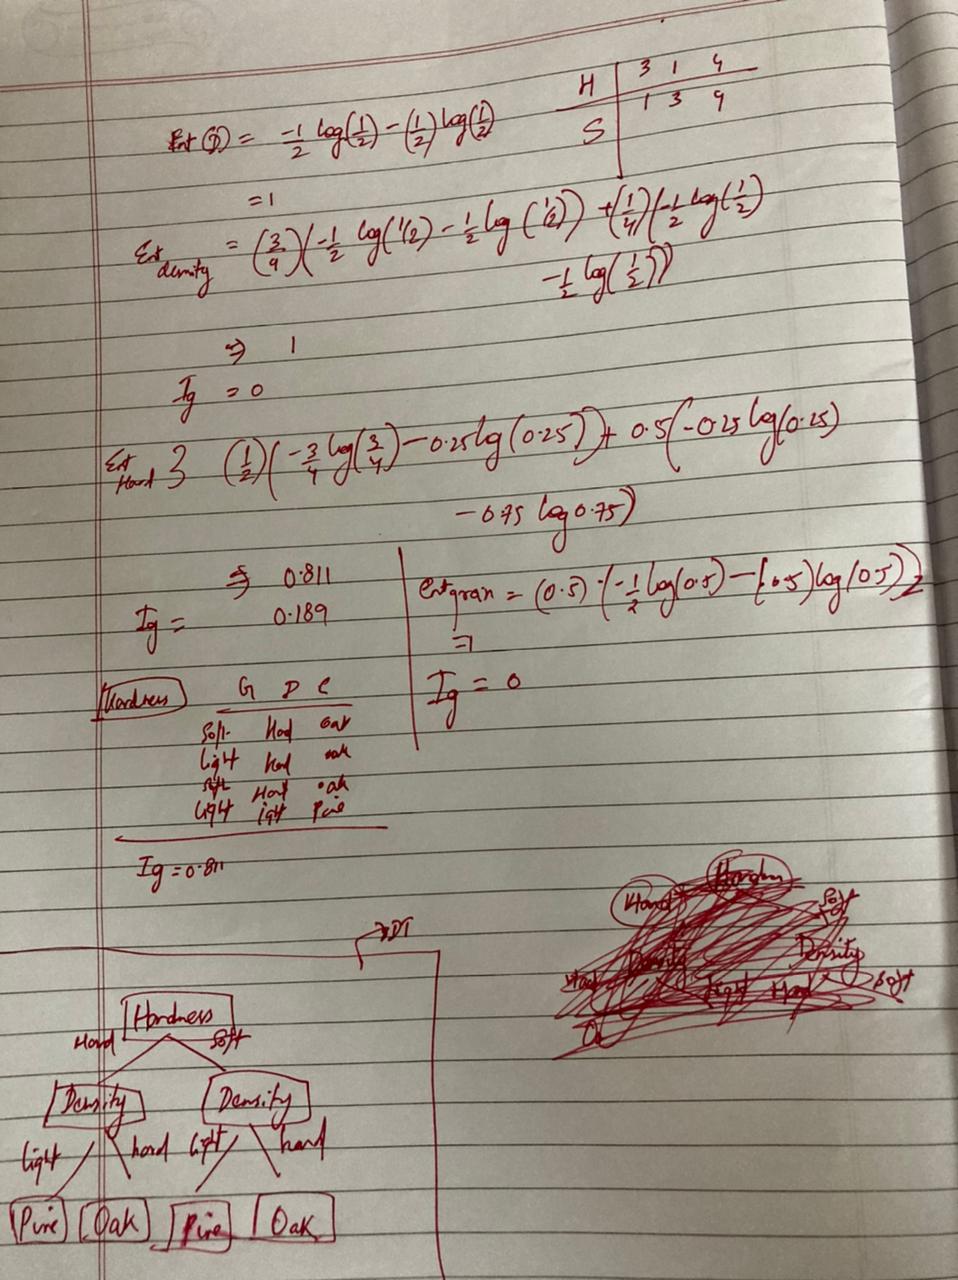 H 3 1 4
S 1 3 4
Ent(D) = -1/2 log(1/2) - (1/2) log(1/2)
= 1
Ent density = (3/4)(-1/2 log(1/2) - 1/2 log(1/2)) + (1/4)(-1/2 log(1/2)
-1/2 log(1/2))
⇒ 1
Ig = 0
Ent Hard } (1/2)(-3/4 log(3/4) - 0.25 log(0.25)) + 0.5(-0.25 log(0.25)
- 0.75 log 0.75)
⇒ 0.811
Ig = 0.189
Ent gran = (0.5)·(-1/2 log(0.5) - (0.5) log(0.5)) 2
= 1
Ig = 0
Hardness
G D C
Soft Had oak
Light had oak
Hard oak
Light light Pine
Ig = 0.811
→ DT
Hardness
Hard Soft
Density Density
light hard light hard
Pine Oak Pine Oak
Hard
Soft
Density Density
light Hard Soft